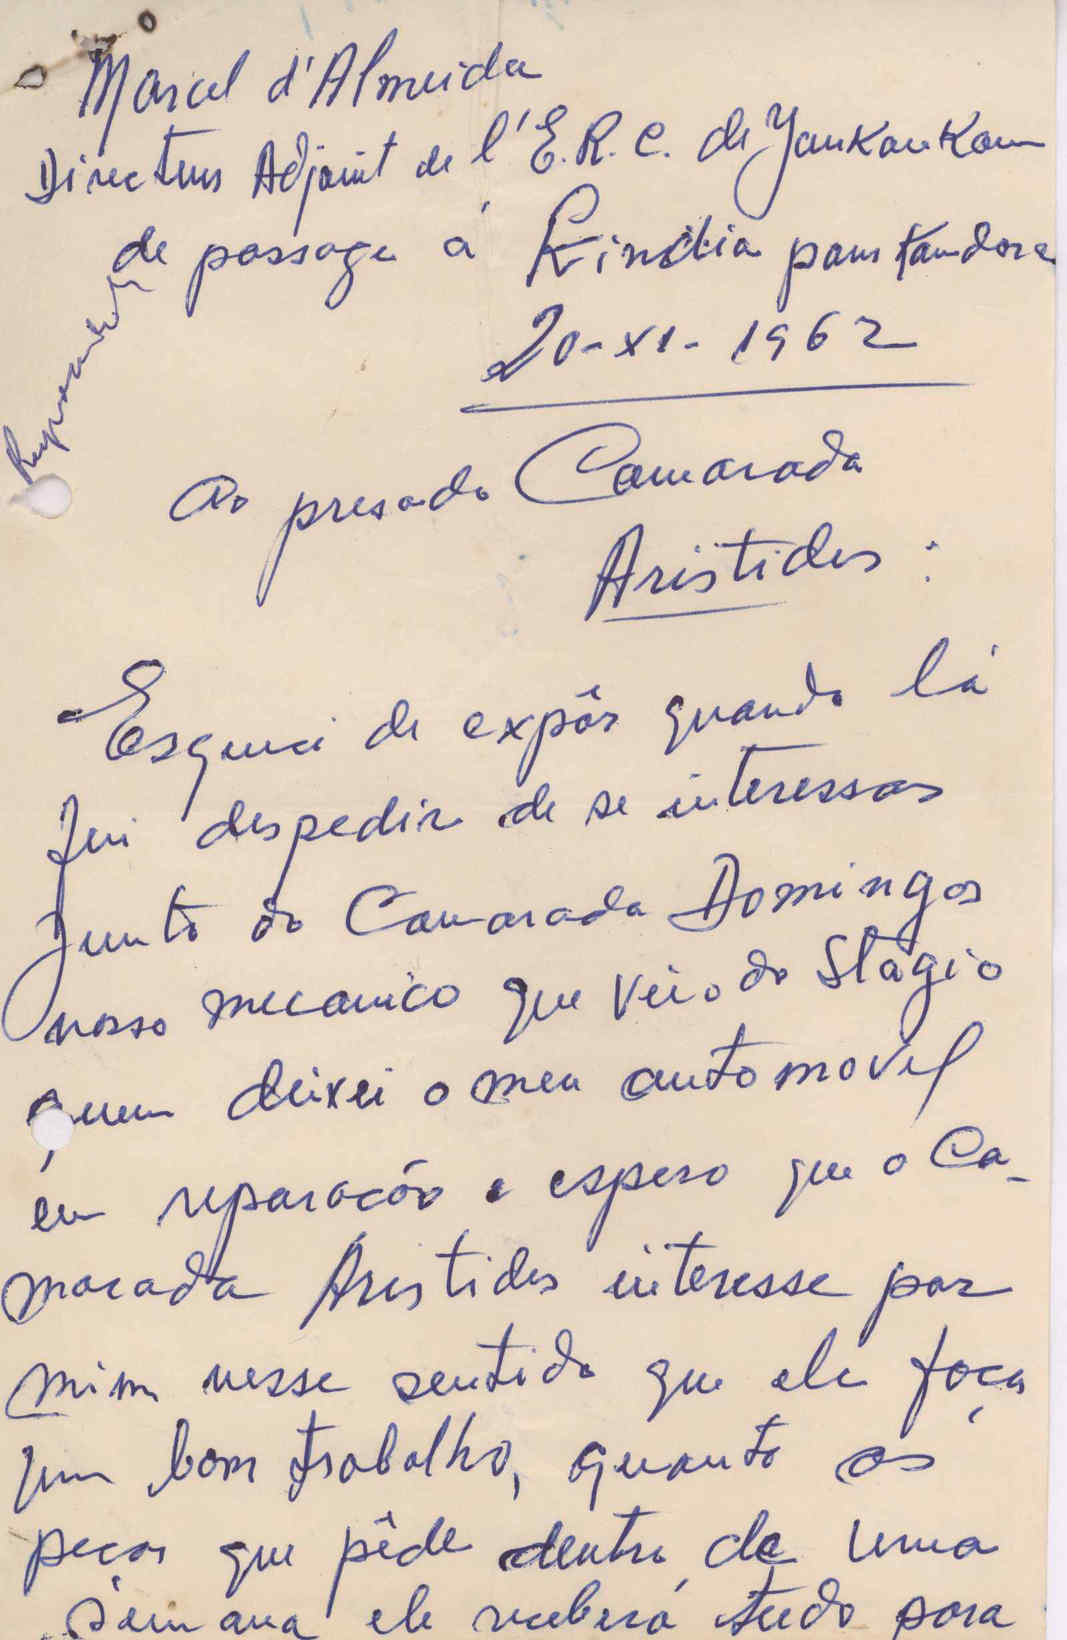 Marcel d'Almeida
Directeur Adjoint de l'E.R.C. de Yankankan
de passage à Kindia pour
20-XI-1962
Ao presado Camarada
Aristides :
Esqueci de expôr quando lá
fui despedir de se interessar
junto do Camarada Domingos
nosso mecanico que veio do Stágio
quem deixei o meu automovel
em reparacão e espero que o Ca-
marada Aristides interesse por
mim nesse sentido que ele faça
um bom trabalho, quanto as
peças que pêde dentro de uma
semana ele receberá tudo para